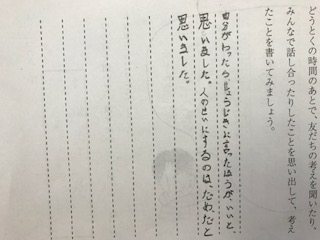 どうとくの時間のあとで、友だちの考えを聞いたり、
みんなで話し合ったりしたことを思い出して、考え
たことを書いてみましょう。
自分がわったらしょうじきに言ったほうが、いいと、
思いました。人のせいにするのは、だめだと
思いました。